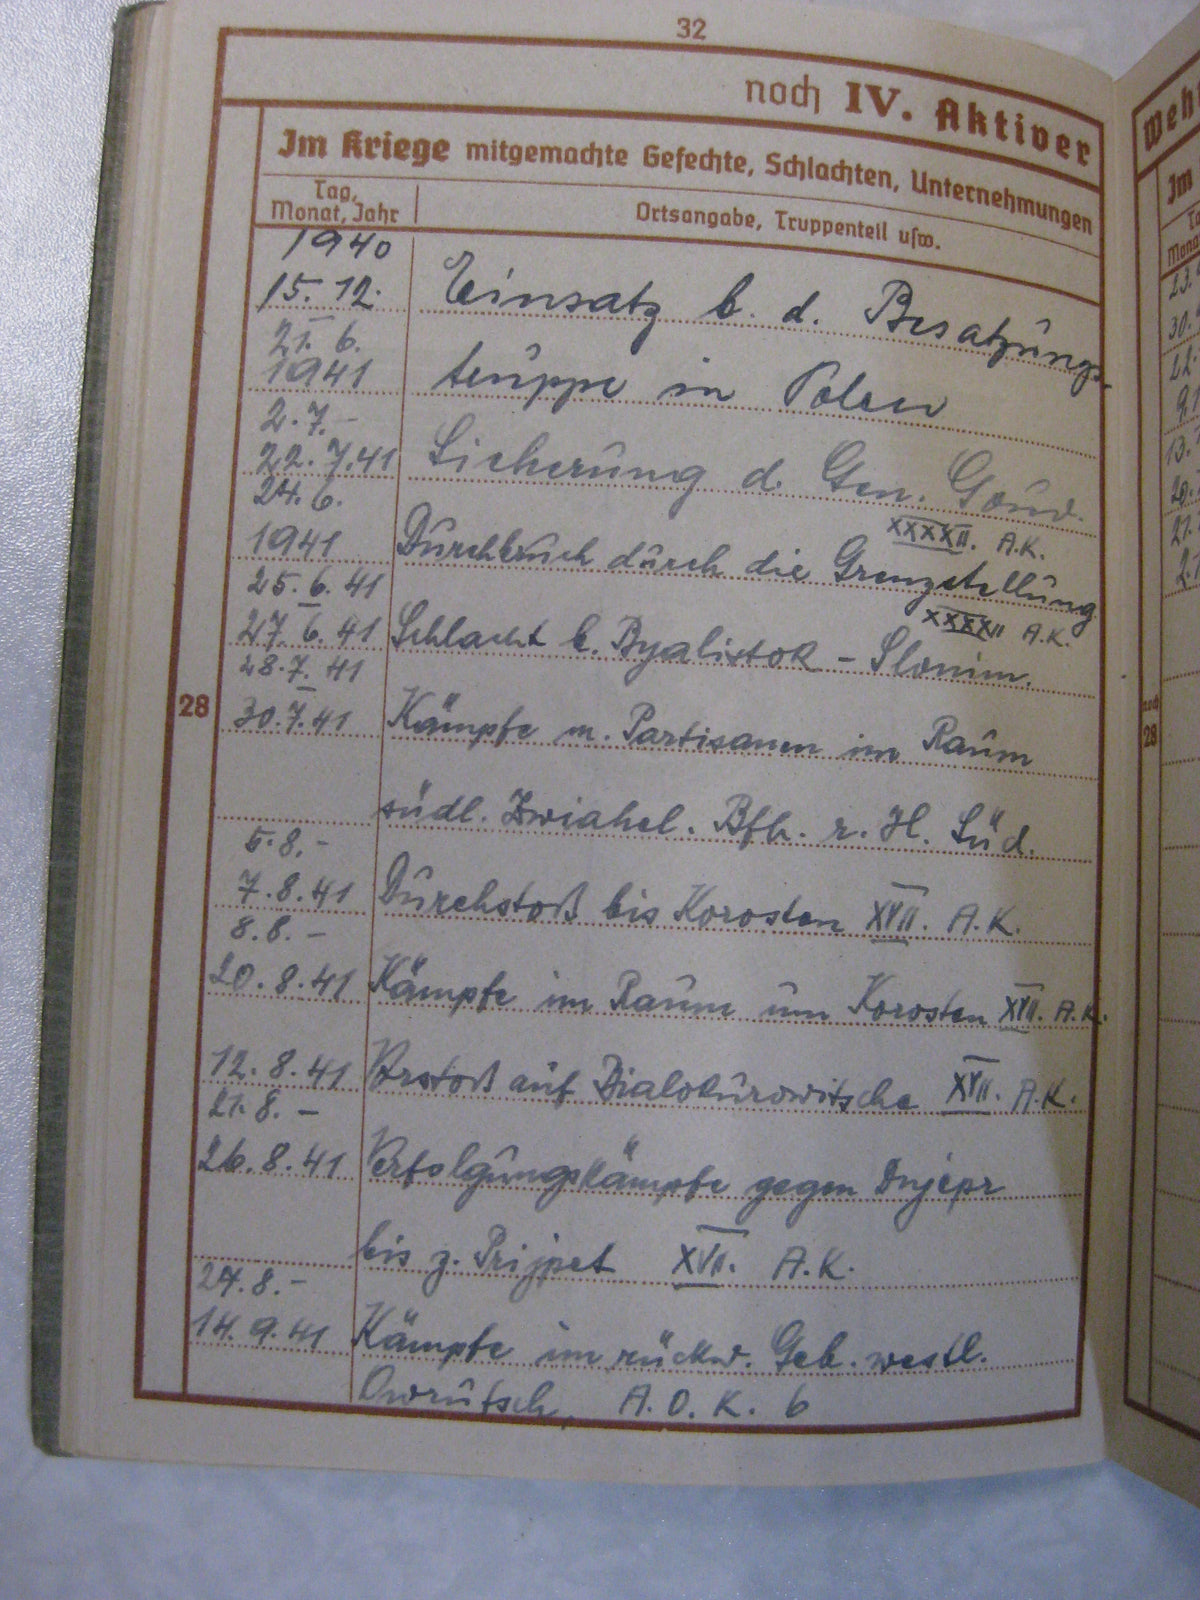 32
noch IV. Aktiver
Im Kriege mitgemachte Gefechte, Schlachten, Unternehmungen
Tag, Monat, Jahr
Ortsangabe, Truppenteil usw.
1940
15. 12. Einsatz b. d. Besatzungs-
21. 6.
1941 truppe in Polen
2.7.–
22.7.41 Sicherung d. Gen. Gouv.
24. 6. XXXXII. A.K.
1941 Durchbruch durch die Grenzstellung
25.6.41 XXXXII A.K.
27.6.41 Schlacht b. Byalistok – Slonim.
28.7.41
28
30.7.41 Kämpfe m. Partisanen im Raum
südl. Zwiahel. Bfh. r. H. Süd.
5.8.–
7.8.41 Durchstoß bis Korosten XVII. A.K.
8.8.–
20.8.41 Kämpfe im Raum um Korosten XVII. A.K.
12.8.41 Vorstoß auf XVII. A.K.
21.8.–
26.8.41 Verfolgungskämpfe gegen Dnjepr
bis z. Pripjet XVII. A.K.
24.8.–
14.9.41 Kämpfe im rückw. Geb. westl.
Owrutsch, A.O.K. 6
Weh
Im
noch
28